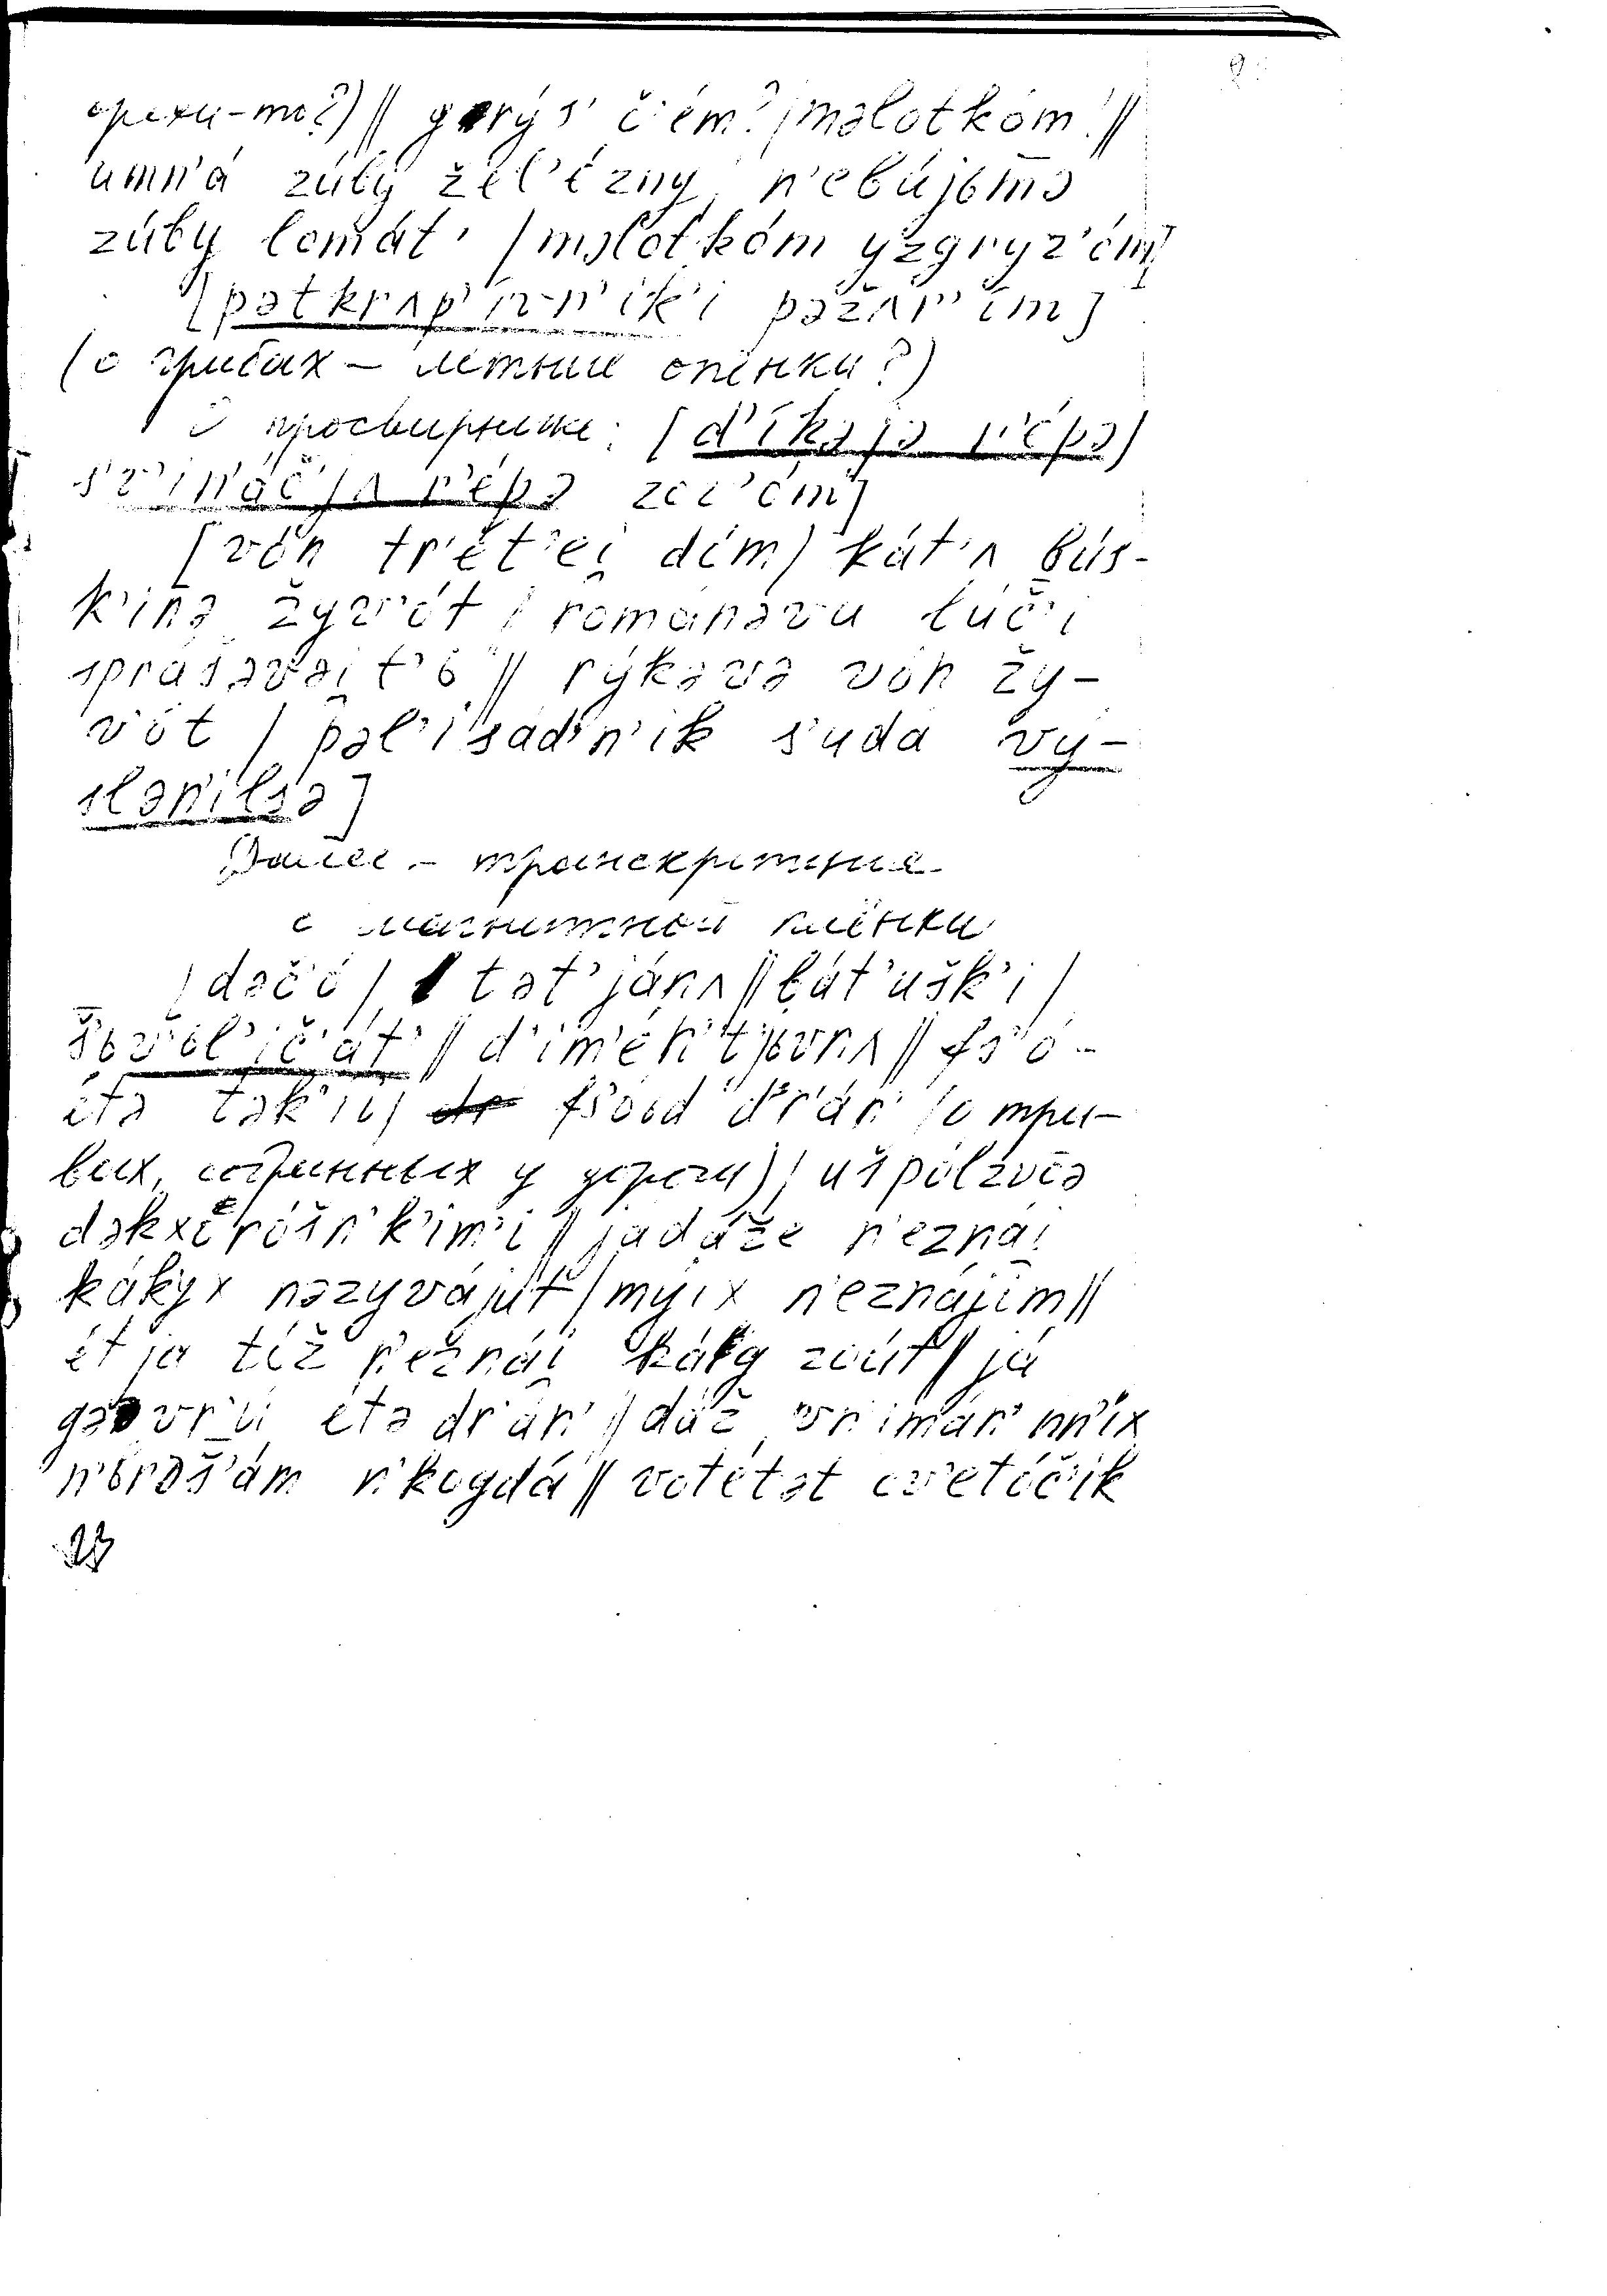 орехи-то?) ‖ gərýs' č'ém? / məlotkóm! ‖
umn'á zúby žel'ézny, n'ebúјьmə
zúby lomát' / məlotkóm yzgryz'óm]
[pətkrʌp'ívn'ik'i pəžʌr'ím]
(о грибах – летние опёнки?)
О просвирнике: [d'íkəjə r'épə /
sv'in'áč'jʌ r'épə zov'óm]
[vón tr'ét'ei̯ dóm / kát'ʌ bús-
k'inə žyv'ót / románəvu lúč'i
sprášəvəi̯t'ь ‖ rýkəvə vón žy-
vót / pəl'isádn'ik s'udá vý-
slən'ilsə]
Далее – транскрипция
с магнитной плёнки
[dəč'ó / tət'jánʌ ‖ bát'ušk'i /
šьvól'ič'át' ‖ d'im'én't'jьvnʌ ‖ fs'ó-
étə tək'íi / fs'óod d'r'án' (о тра-
вах, у дороги) / ušpólzvəə
dəkxóróšn'k'im'i ‖ jadáže n'eznái̯
kákyx nəzyvájut / mýix n'eznájim ‖
ét ja tóž n'eznái̯ káky zoút ‖ já
gəvr'ú étə dr'án' ‖ dáž vn'imán' nn'íx
n'ьrəš'ám n'kogdá ‖ votétət cv'etóč'ik